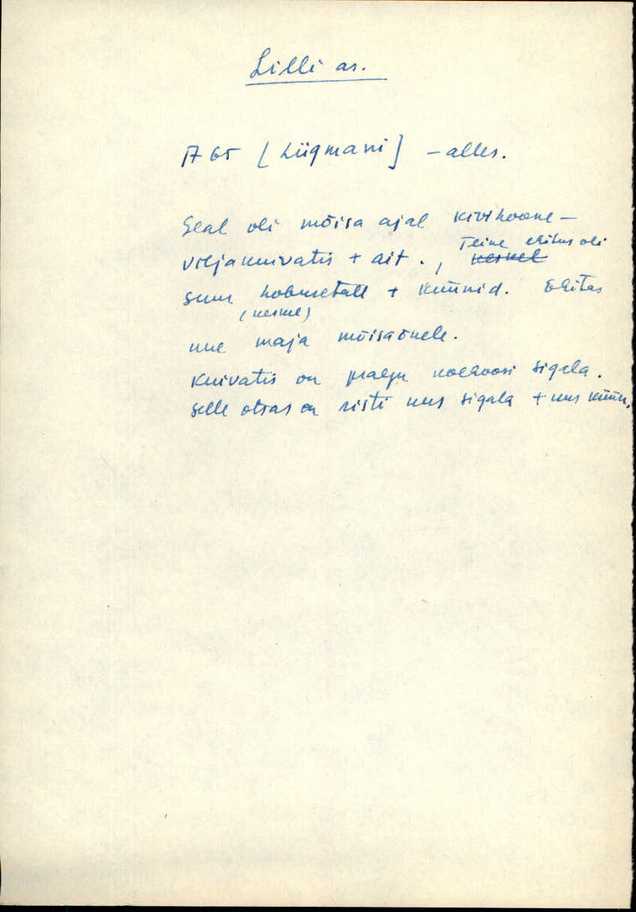 Lilli as.
A 65 [Liigmani] - alles.
Seal oli mõisa ajal kivihoone -
viljakuivatis + ait. , Teine ehitus oli
keskel
suur hobusetall + küünid. Ehitas
(keskel)
uue maja mõisaõuele.
Kuivatis on praegu kolhoosi sigala.
Selle otsas on risti uus sigala + uus küün.